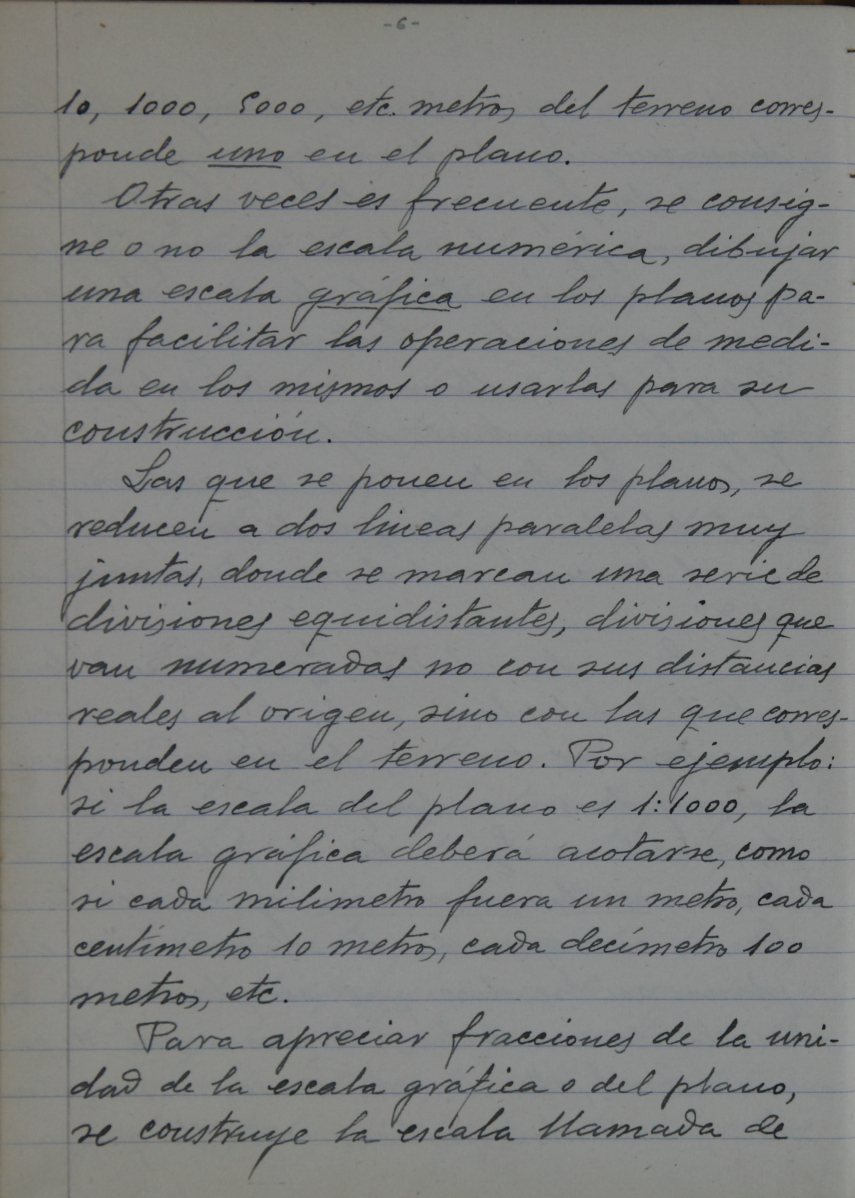 -6-
10, 1000, 5000, etc. metros del terreno corres-
ponde uno en el plano.
Otras veces es frecuente, se consig-
ne o no la escala numérica, dibujar
una escala gráfica en los planos pa-
ra facilitar las operaciones de medi-
da en los mismos o usarlas para su
construcción.
Las que se ponen en los planos, se
reducen a dos líneas paralelas muy
juntas, donde se marcan una serie de
divisiones equidistantes, divisiones que
van numeradas no con sus distancias
reales al origen, sino con las que corres-
ponden en el terreno. Por ejemplo:
si la escala del plano es 1:1000, la
escala gráfica deberá acotarse, como
si cada milimetro fuera un metro, cada
centímetro 10 metros, cada decímetro 100
metros, etc.
Para apreciar fracciones de la uni-
dad de la escala gráfica o del plano,
se construye la escala llamada de